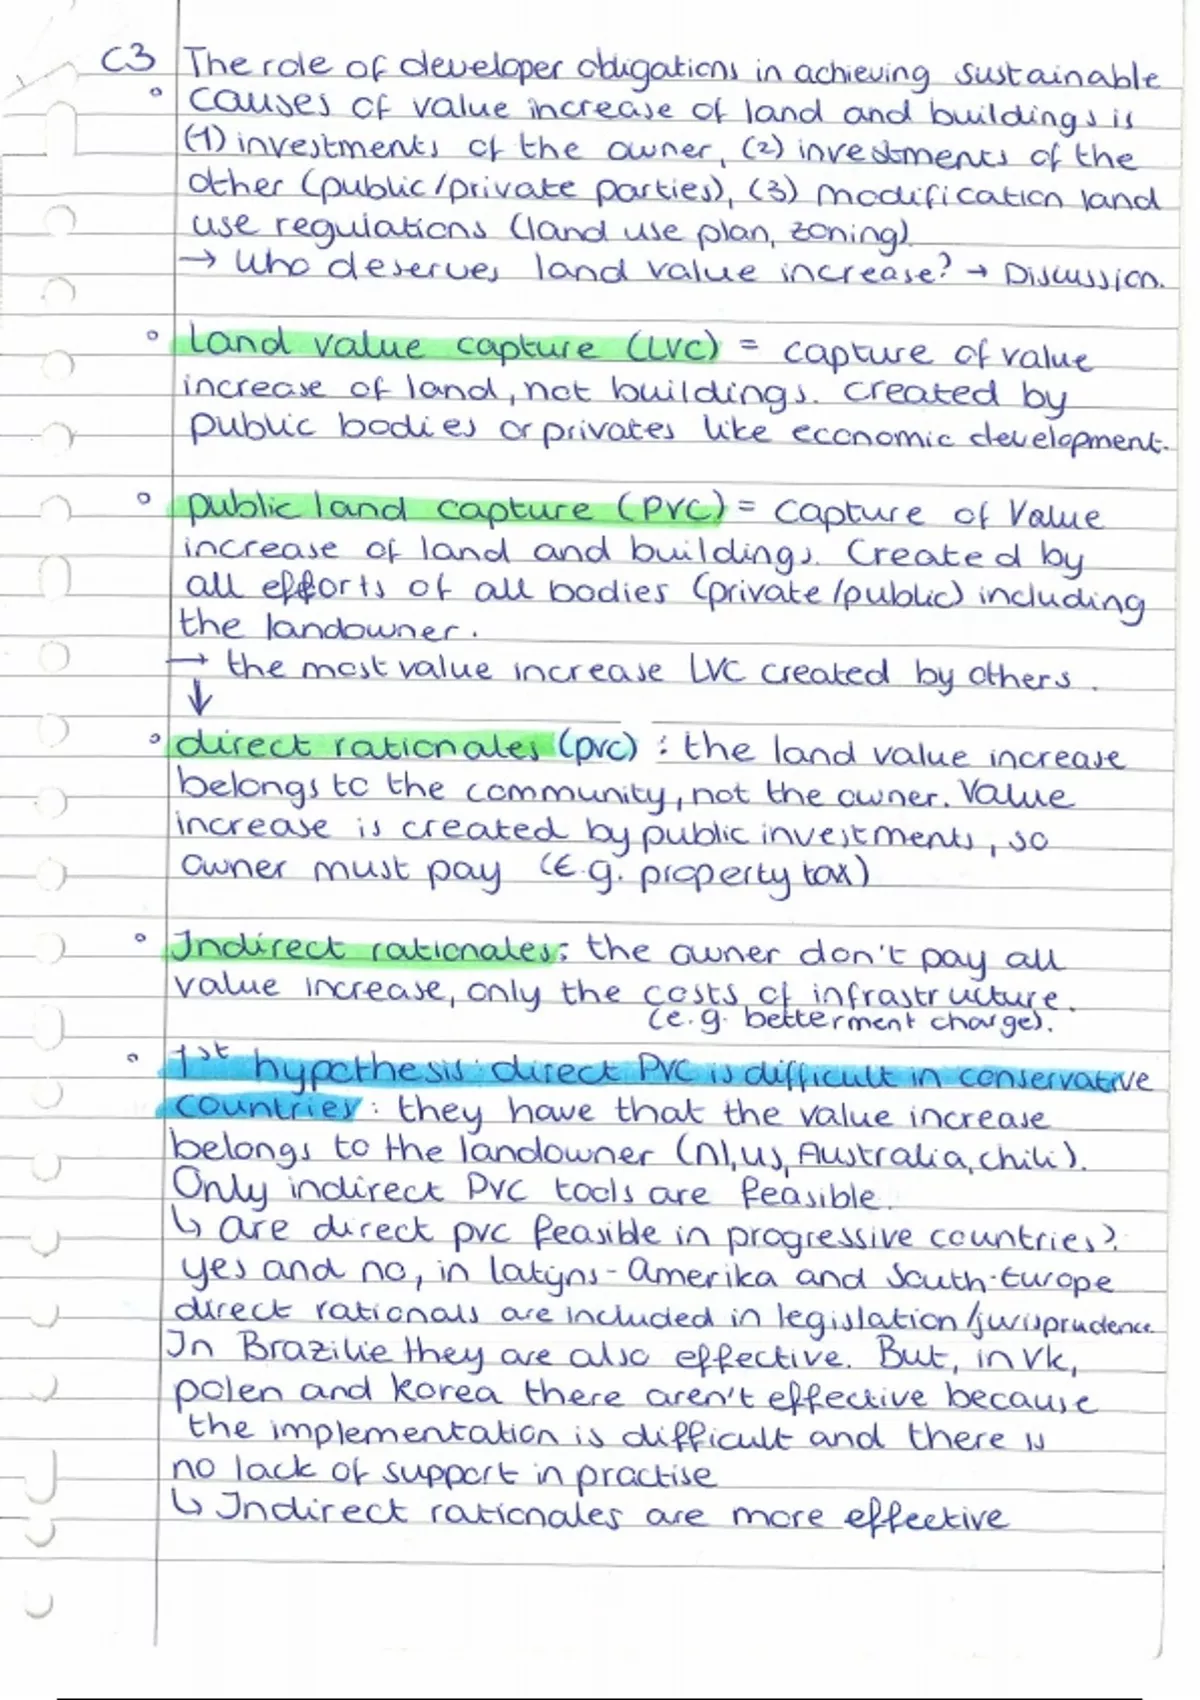 C3 The role of developer obligations in achieving sustainable
° causes of value increase of land and buildings is
(1) investments of the owner, (2) investments of the
other (public/private parties), (3) modification land
use regulations (land use plan, zoning)
→ Who deserves land value increase? → Discussion.
° land value capture (LVC) = capture of value
increase of land, not buildings. created by
public bodies or privates like economic development.
° public land capture (PVC) = capture of Value
increase of land and buildings. Created by
all efforts of all bodies (private/public) including
the landowner.
→ the most value increase LVC created by others.
↓
° direct rationales (pvc) : the land value increase
belongs to the community, not the owner. Value
increase is created by public investments, so
owner must pay (E.g. property tax)
° Indirect rationales: the owner don't pay all
value increase, only the costs of infrastructure.
(e.g. betterment charge).
° 1st hypothesis: direct PVC is difficult in conservative
countries: they have that the value increase
belongs to the landowner (nl, us, Australia, chili).
Only indirect PVC tools are feasible.
↳ are direct pvc feasible in progressive countries?
yes and no, in latijns-Amerika and South-Europe
direct rationals are included in legislation/jurisprudence
In Brazilie they are also effective. But, in vk,
polen and korea there aren't effective because
the implementation is difficult and there is
no lack of support in practise
↳ Indirect rationales are more effective